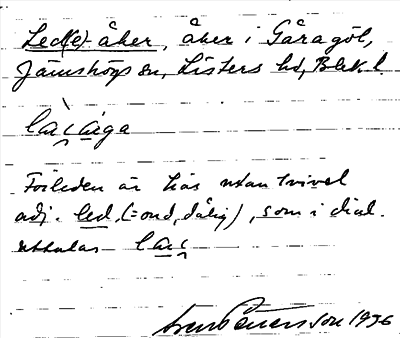 Led(e)-åker, åker i Gåragöl,
Jämshögs sn, Listers hd, Blek. l
Förleden är här utan tvivel
adj. led, (= ond, dålig), som i dial.
uttalas
Sven Benson 1936